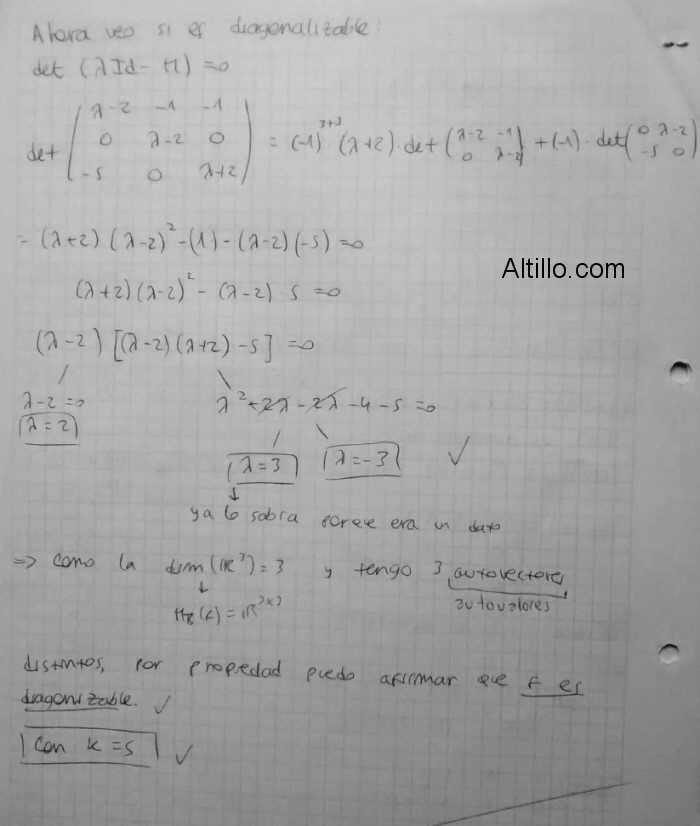 Ahora veo si es diagonalizable:
det (λId - M) = 0
det ( λ-2 -1 -1
0 λ-2 0
-5 0 λ+2 ) = (-1)^3+3 (λ+2) · det ( λ-2 -1
0 λ-2 ) + (-1) · det ( 0 λ-2
-5 0 )
= (λ+2) (λ-2)^2 - (1) - (λ-2) (-5) = 0
(λ+2) (λ-2)^2 - (λ-2) 5 = 0
Altillo.com
(λ-2) [(λ-2) (λ+2) - 5] = 0
λ-2 = 0
λ = 2
λ^2 + 2λ - 2λ - 4 - 5 = 0
λ = 3 λ = -3 ✓
ya lo sabia porque era un dato
=> como la dim (R^3) = 3 y tengo 3 autovectores
autovalores
distintos, por propiedad puedo afirmar que F es
diagonizable. ✓
con k = 5 ✓